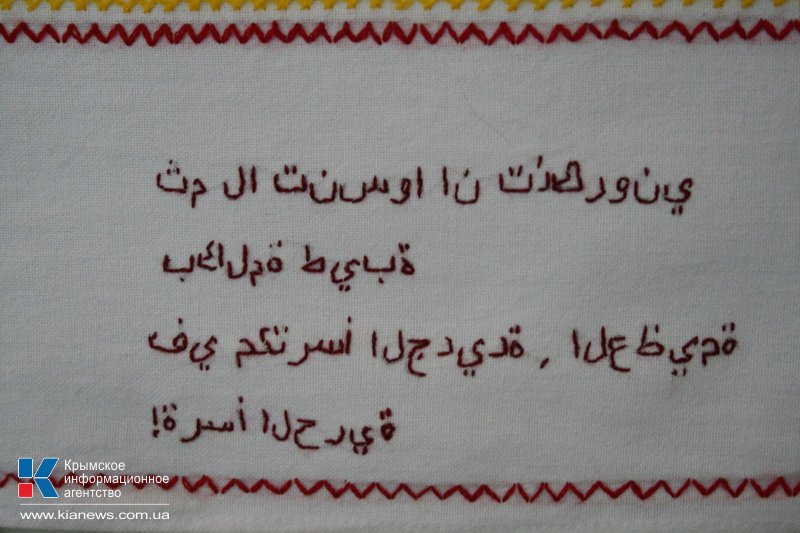 ثم لا تنسوا ان تذكروني
بكلمة طيبة
في أسرتكم الجديدة , العظيمة
أسرة الحرية!
Крымское
информационное
агентство
www.kianews.com.ua